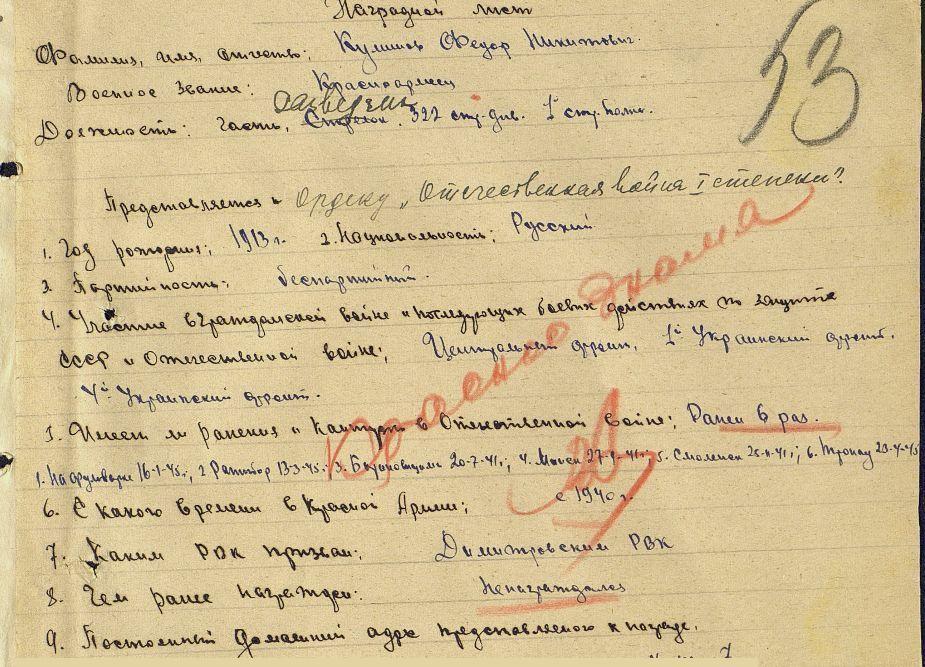 Наградной лист
Фамилия, имя, отчество: Кулишов Федор Никитович.
53
Военное звание: Красноармеец
Должность: часть, Стрелок. 322 стр. див. 1й стр. полк.
Представляется к Ордену „Отечественная война I степени"?
1. Год рождения; 1913 г. 2. Национальность; Русский
3. Партийность; беспартийный.
4. Участие в гражданской войне и последующих боевых действиях по защите
СССР и Отечественной войне; Центральный фронт, 1й Украинский фронт.
4й Украинский фронт.
Красного Знамя
5. Имеет ли ранения и контузии в Отечественной войне; Ранен 6 раз.
16-1-45г.; 2. Раттбор 13-3-45г; 3. 20-7-41г; 4. Минск 27-9-41г; 5. Смоленск 6.
6. С какого времени в Красной Армии; с 1940 г.
7. Каким РВК призван; Димитровским РВК
8. Чем ранее награжден: Ненаграждался
9. Постоянный домашний адрес представляемого к награде.